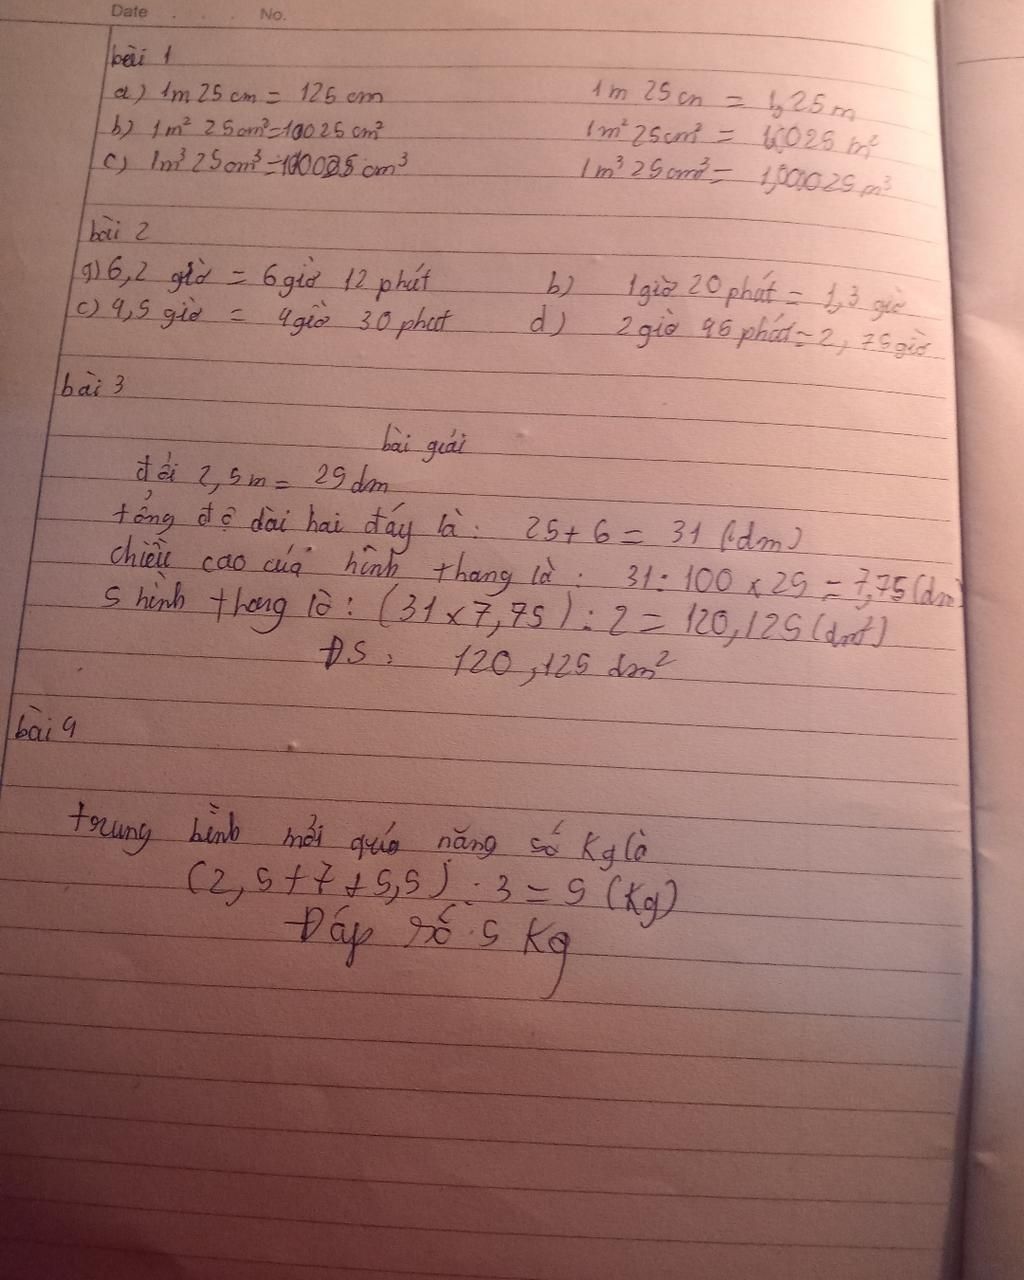 Date . . . No.
bài 1
a) 1m 25 cm = 125 cm 1m 25 cm = 1,25 m
b) 1m² 25cm² = 10025 cm² 1m² 25cm² = 1,0025 m²
c) 1m³ 25cm³ = cm³ 1m³ 25cm³ = 1,000025 m³
bài 2
a) 6,2 giờ = 6 giờ 12 phút b) 1 giờ 20 phát = 1,3 giờ
c) 4,5 giờ = 4 giờ 30 phut d) 2 giờ 45 phút = 2,75 giờ
bài 3
bài giải
đổi 2,5 m = 25 dm
tổng độ dài hai đáy là: 25 + 6 = 31 (dm)
chiều cao của hình thang là: 31 : 100 x 25 = 7,75 (dm)
S hình thang là: (31 x 7,75) : 2 = 120,125 (dm²)
ĐS: 120,125 dm²
bài 4
trung bình mỗi quả nặng số Kg là
(2,5 + 7 + 5,5) : 3 = 5 (Kg)
Đáp số: 5 Kg